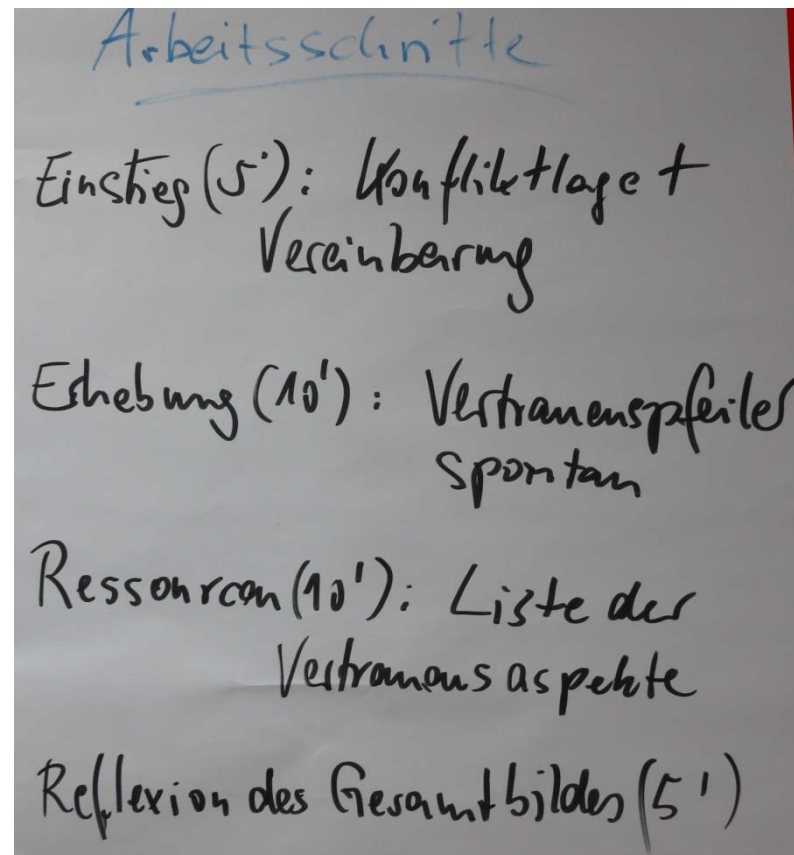 Arbeitsschritte
Einstieg (5'): Konfliktlage +
Vereinbarung
Erhebung (10'): Vertrauenspfeiler
spontan
Ressourcen (10'): Liste der
Vertrauensaspekte
Reflexion des Gesamtbildes (5')